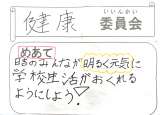 健康
いいんかい
委員会
めあて
のみんなが明るく元気に
学校生活がおくれる
ようにしよう!